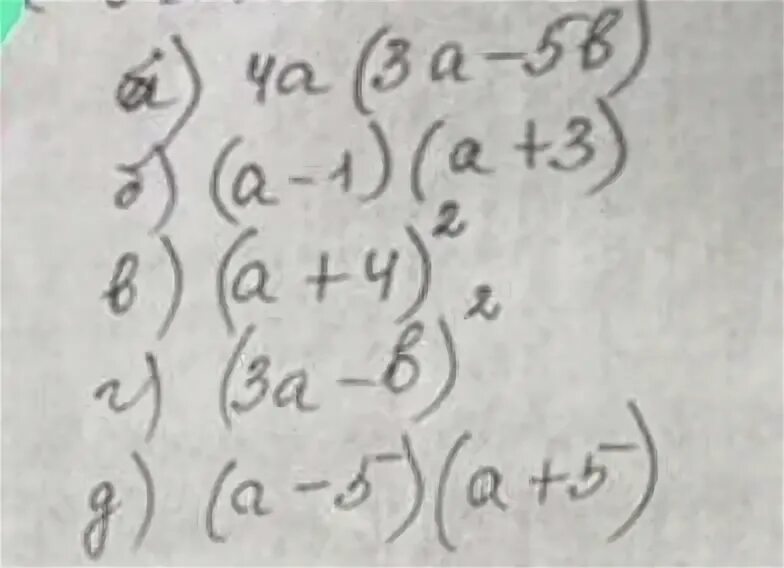 а) 4a (3a - 5b)
б) (a - 1)(a + 3)
в) (a + 4)²
г) (3a - b)²
д) (a - 5)(a + 5)